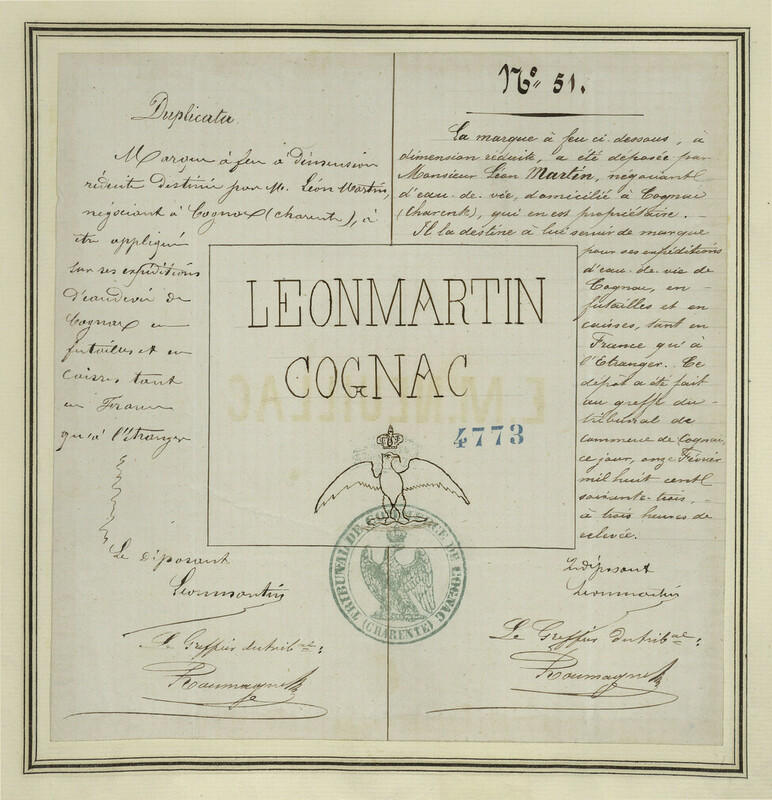 Duplicata
Marque à feu à dimension
réduite destinée par M. Léon Martin,
négociant à Cognac (charente), à
être appliquée
sur ses expéditions
d'eau de vie de
Cognac en
futailles et en
caisses, tant
en France
qu'à l'étranger
Le déposant
Leonmartin
Le Greffier du tribal:
Roumagne
No 51.
La marque à feu ci-dessous, à
dimension réduite, a été déposée par
Monsieur Léon Martin, négociant
d'eau-de-vie, domicilié à Cognac
(charente), qui en est propriétaire. -
Il la destine à lui servir de marque
pour ses expéditions
d'eau-de-vie de
Cognac, en
futailles et en
caisses, tant en
France qu'à
l'Etranger. Ce
dépôt a été fait
au greffe du
tribunal de
commerce de Cognac,
ce jour, onze Février
mil huit cent
soixante-trois, -
à trois heures de
relevée.
Le déposant
Leonmartin
Le Greffier du tribal:
Roumagne
LEONMARTIN
COGNAC
4773
TRIBUNAL DE COMMERCE DE COGNAC
(CHARENTE)